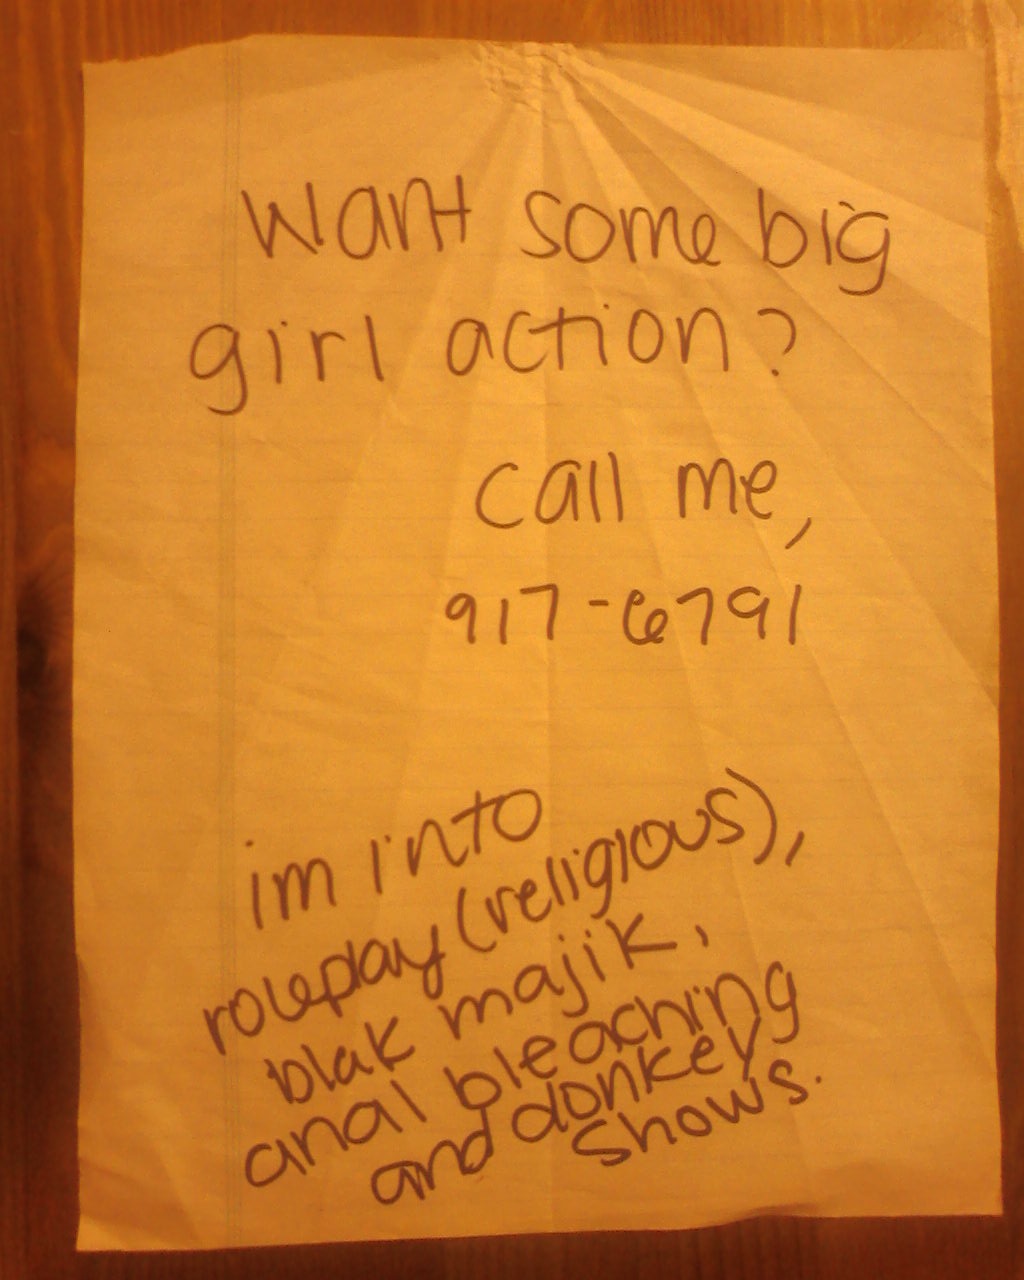 Want some big
girl action?
call me,
917-6791
im into
roleplay (religious),
blak majik,
anal bleaching
and donkey
shows.